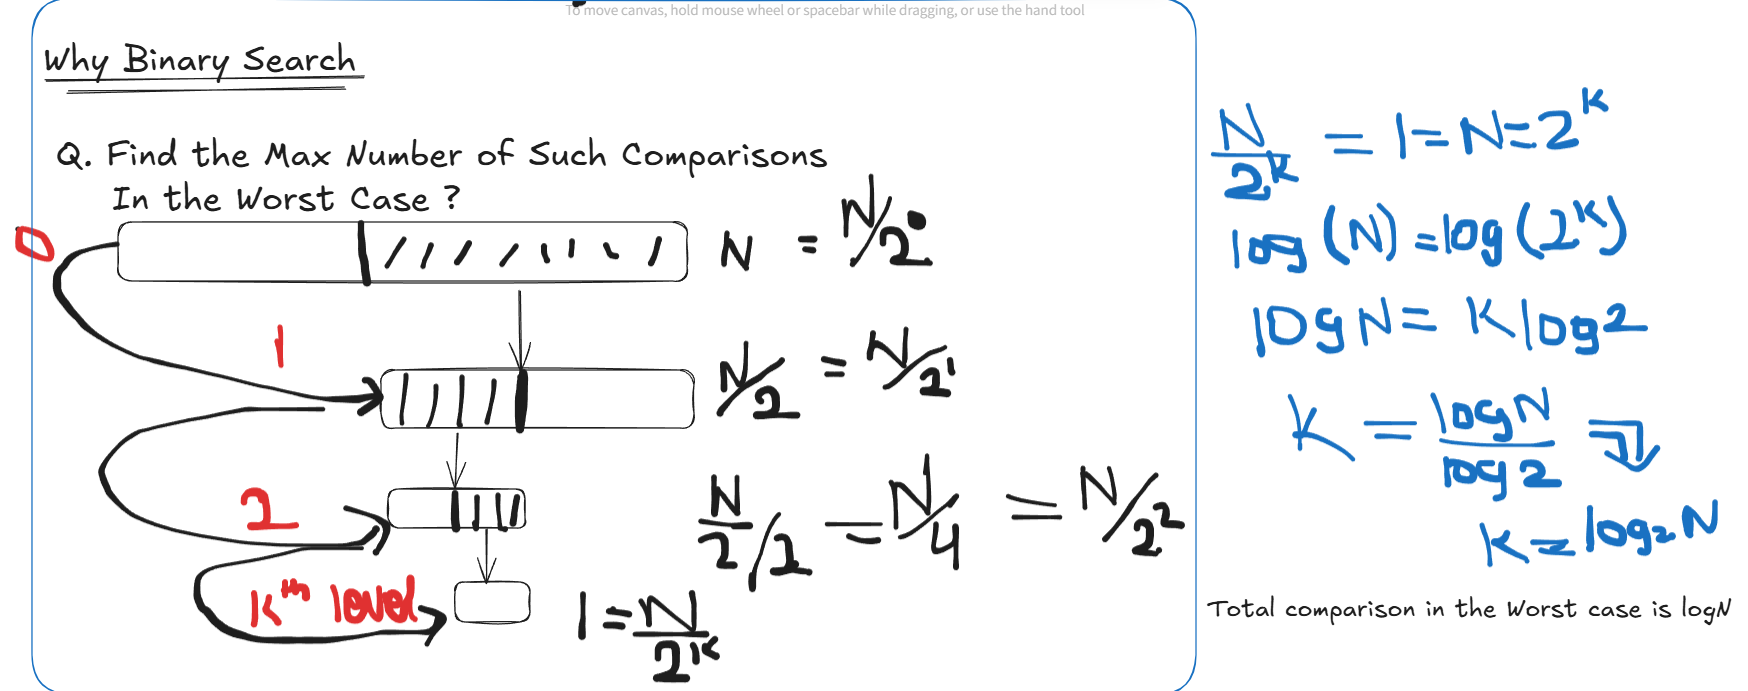 To move canvas, hold mouse wheel or spacebar while dragging, or use the hand tool
Why Binary Search
Q. Find the Max Number of Such Comparisons
In the Worst Case ?
0
N = N/2⁰
1
N/2 = N/2¹
2
N/2/2 = N/4 = N/2²
Kth level
1 = N/2^K
N/2^K = 1 = N = 2^K
log (N) = log (2^K)
log N = K log 2
K = log N / log 2
K = log₂ N
Total comparison in the Worst case is logN